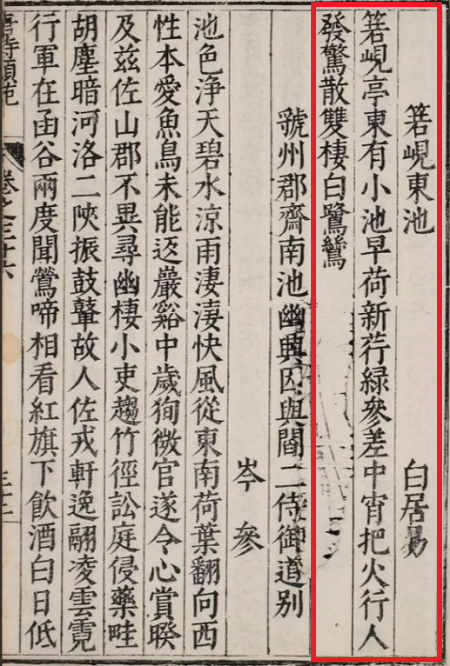 箬峴東池　白居易
箬峴亭東有小池早荷新荇緑參差中宵把火行人
發驚散雙棲白鷺鷥
虢州郡齋南池幽興因與閻二侍御道别
岑參
池色浄天碧水涼雨淒淒快風從東南荷葉翻向西
性本愛魚鳥未能返巖谿中歲徇微官遂令心賞睽
及兹佐山郡不異尋幽棲小吏趨竹徑訟庭侵藥畦
胡塵暗河洛二陝振鼓鼙故人佐戎軒逸翮凌雲霓
行軍在函谷兩度聞鶯啼相看紅旗下飲酒白日低
卷之三十六